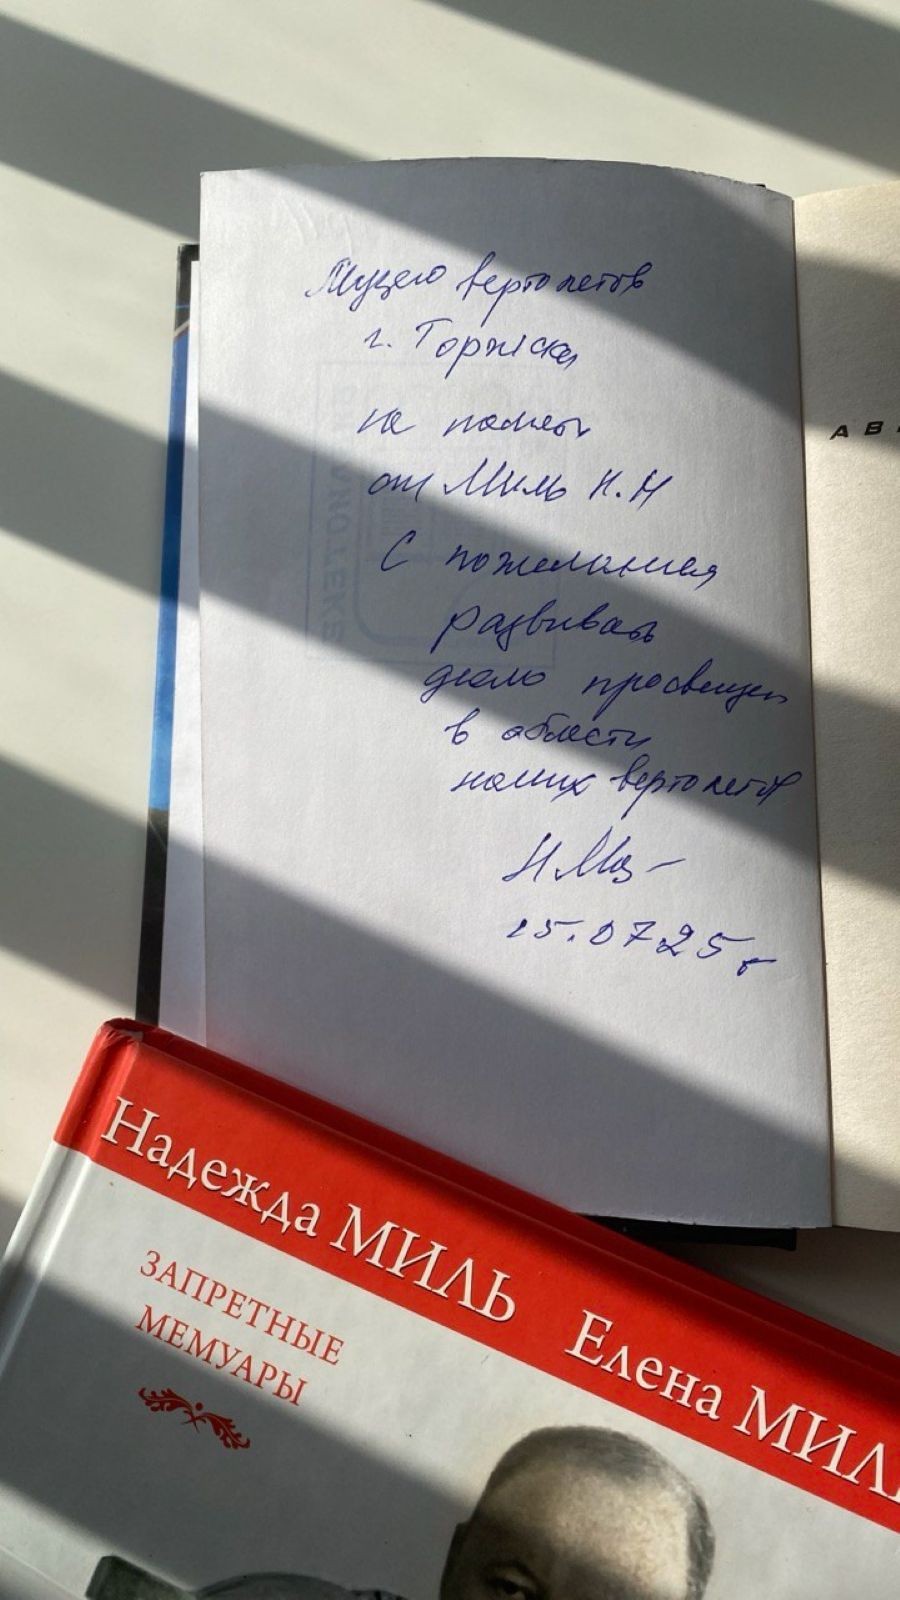 Музею вертолетов
г. Торжска
на память
от Миль Н.Н
С пожелания
развивать
дело просвещен
в области
наших вертолетов
15.07.25 г
АВ
БИБЛИОТЕКЕ
Надежда МИЛЬ Елена МИЛЬ
ЗАПРЕТНЫЕ
МЕМУАРЫ